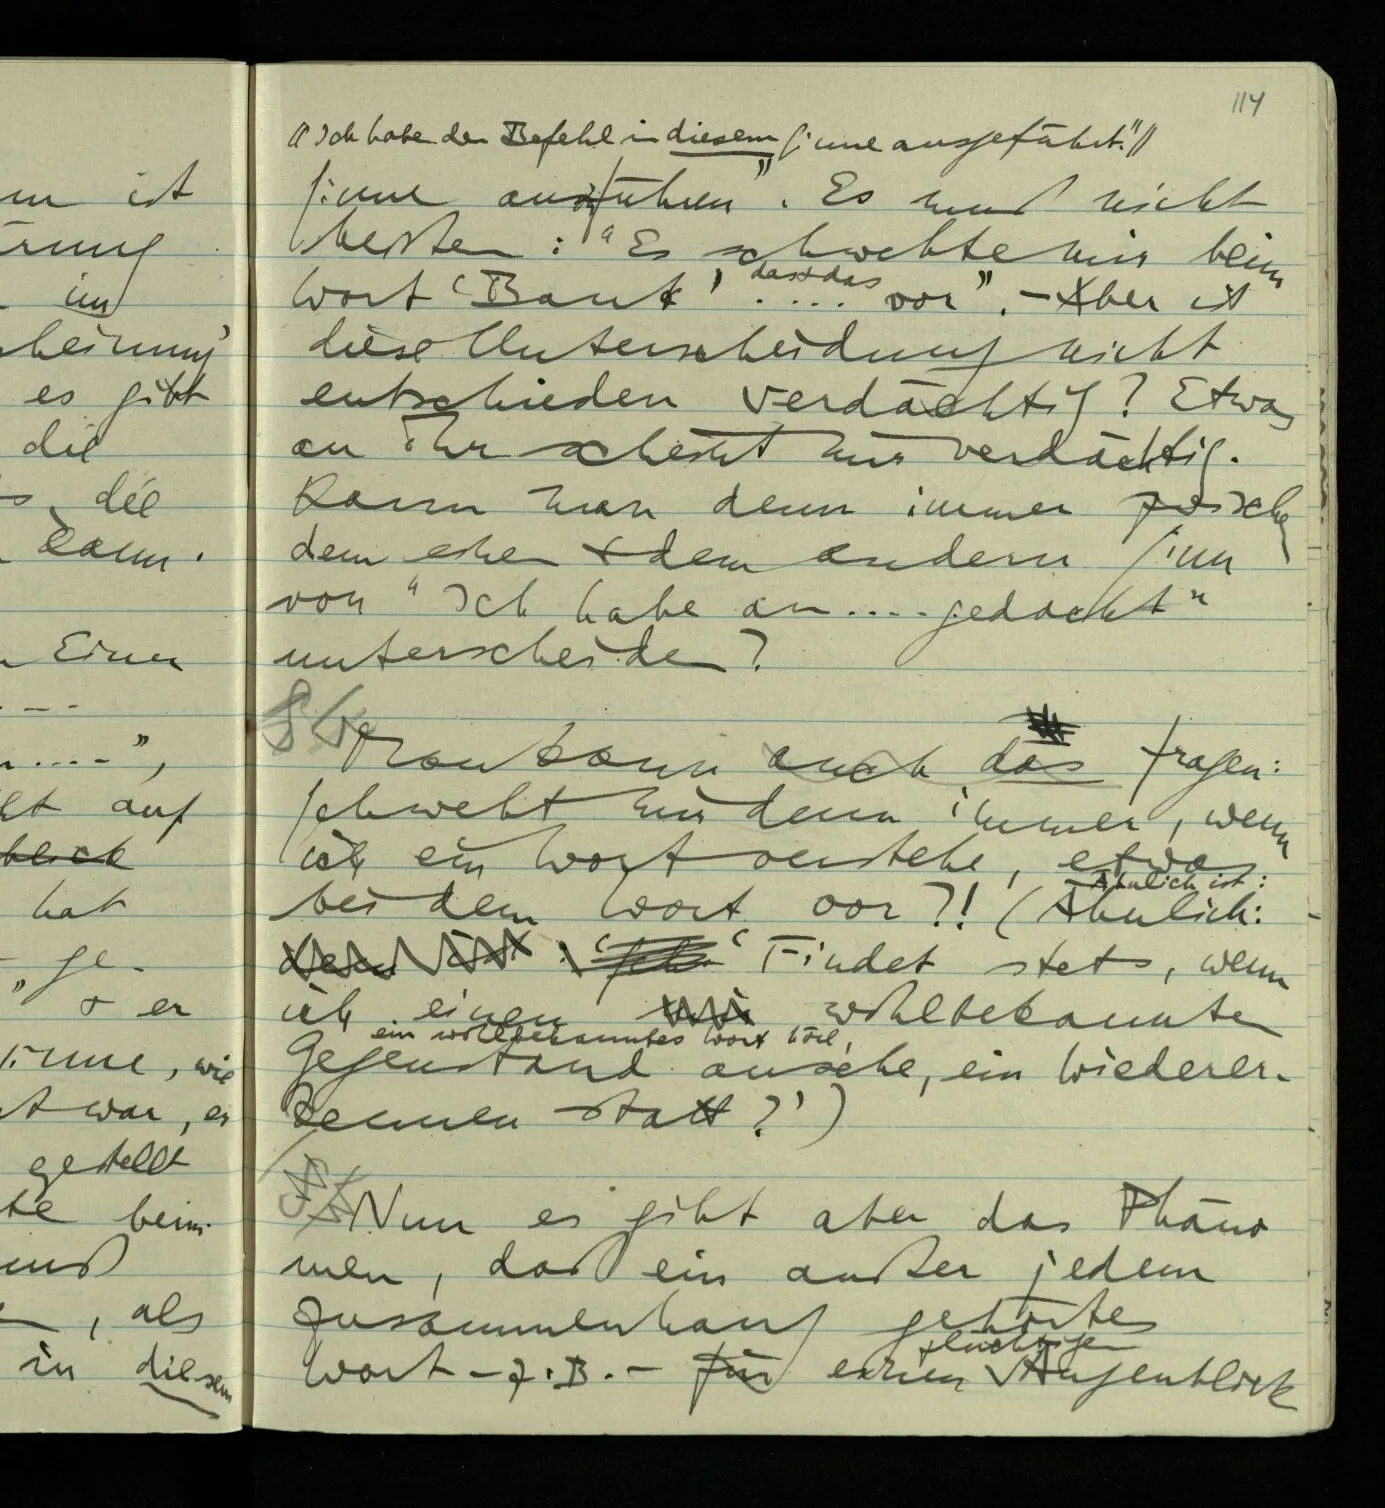 m ist
rung
im
heinung'
es gibt
die
s, die
kann.
Einen
----
n....",
auf
hat
"ge-
& er
Sinne, wie
war, er
gestellt
te beim
muß
, als
in diesem
114
(("Ich habe den Befehl in diesem Sinne ausgeführt."))
Sinne ausführen". Es muß nicht
heißen: "Es schwebte mir beim
das & das
Wort 'Bank' .... vor". – Aber ist
diese Unterscheidung nicht
entschieden verdächtig? Etwas
an ihr scheint mir verdächtig.
Kann man denn immer zwischen
dem einen & dem andern Sinn
von "Ich habe an .... gedacht"
unterscheiden?
Man kann auch das fragen:
Schwebt mir denn immer, wenn
ich ein Wort verstehe, etwas
Ähnlich ist:
bei dem Wort vor?! (Ähnlich:
'Findet stets, wenn
ich einen wohlbekannten
ein wohlbekanntes Wort höre,
Gegenstand ansehe, ein Wiederer-
kennen statt?')
Nun es gibt aber das Phäno
men, daß ein außer jedem
Zusammenhang gehörtes
flüchtigen
Wort – z.B. – für einen Augenblick